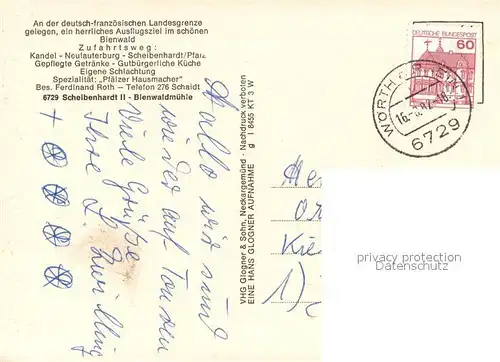 An der deutsch-französischen Landesgrenze
gelegen, ein herrliches Ausflugsziel im schönen
Bienwald
Zufahrtsweg:
Kandel - Neulauterburg - Scheibenhardt/Pfalz
Gepflegte Getränke - Gutbürgerliche Küche
Eigene Schlachtung
Spezialität: „Pfälzer Hausmacher"
Bes. Ferdinand Roth — Telefon 276 Schaidt
6729 Scheibenhardt II - Bienwaldmühle
Hallo wir sind
wieder auf Touren
Viele Grüße
Ihre L. Zwilling
VHG Glogner & Sohn, Neckargemünd - Nachdruck verboten
EINE HANS GLOGNER AUFNAHME g 1 8455 KT 3 W
DEUTSCHE BUNDESPOST
60
WÖRTH
6729
privacy protection
privacy protection